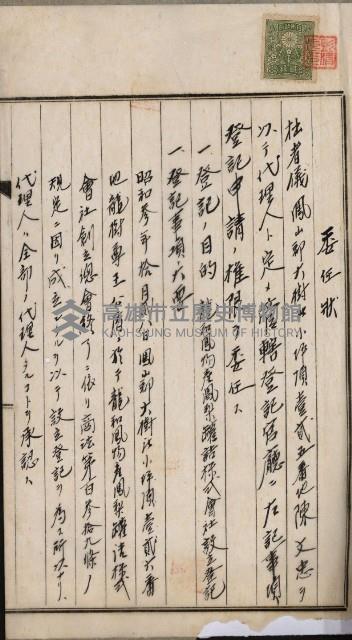 委任状
拙者儀鳳山郡大樹庄小坪頂壹貳五番地陳文忠ヲ
以テ代理人ト定メ管轄登記官廳ニ左記事項
登記申請ノ権限ヲ委任ス
一、登記ノ目的 龍和鳳物産鳳梨罐詰株式會社設立登記
一、登記事項大要
昭和參年拾月 日鳳山郡大樹庄小坪頂壹貳六番
地龍樹 王 ニ於テ龍和鳳物産鳳梨罐詰株式
會社創立總會終了ニ依リ商法第百參拾九條ノ
規定ニ因リ成立シタルヲ以テ設立登記ヲ為ス所以ナリ
代理人ハ全部ノ代理人タルコトヲ承認ス
高雄市立歷史博物館
KAOHSIUNG MUSEUM OF HISTORY